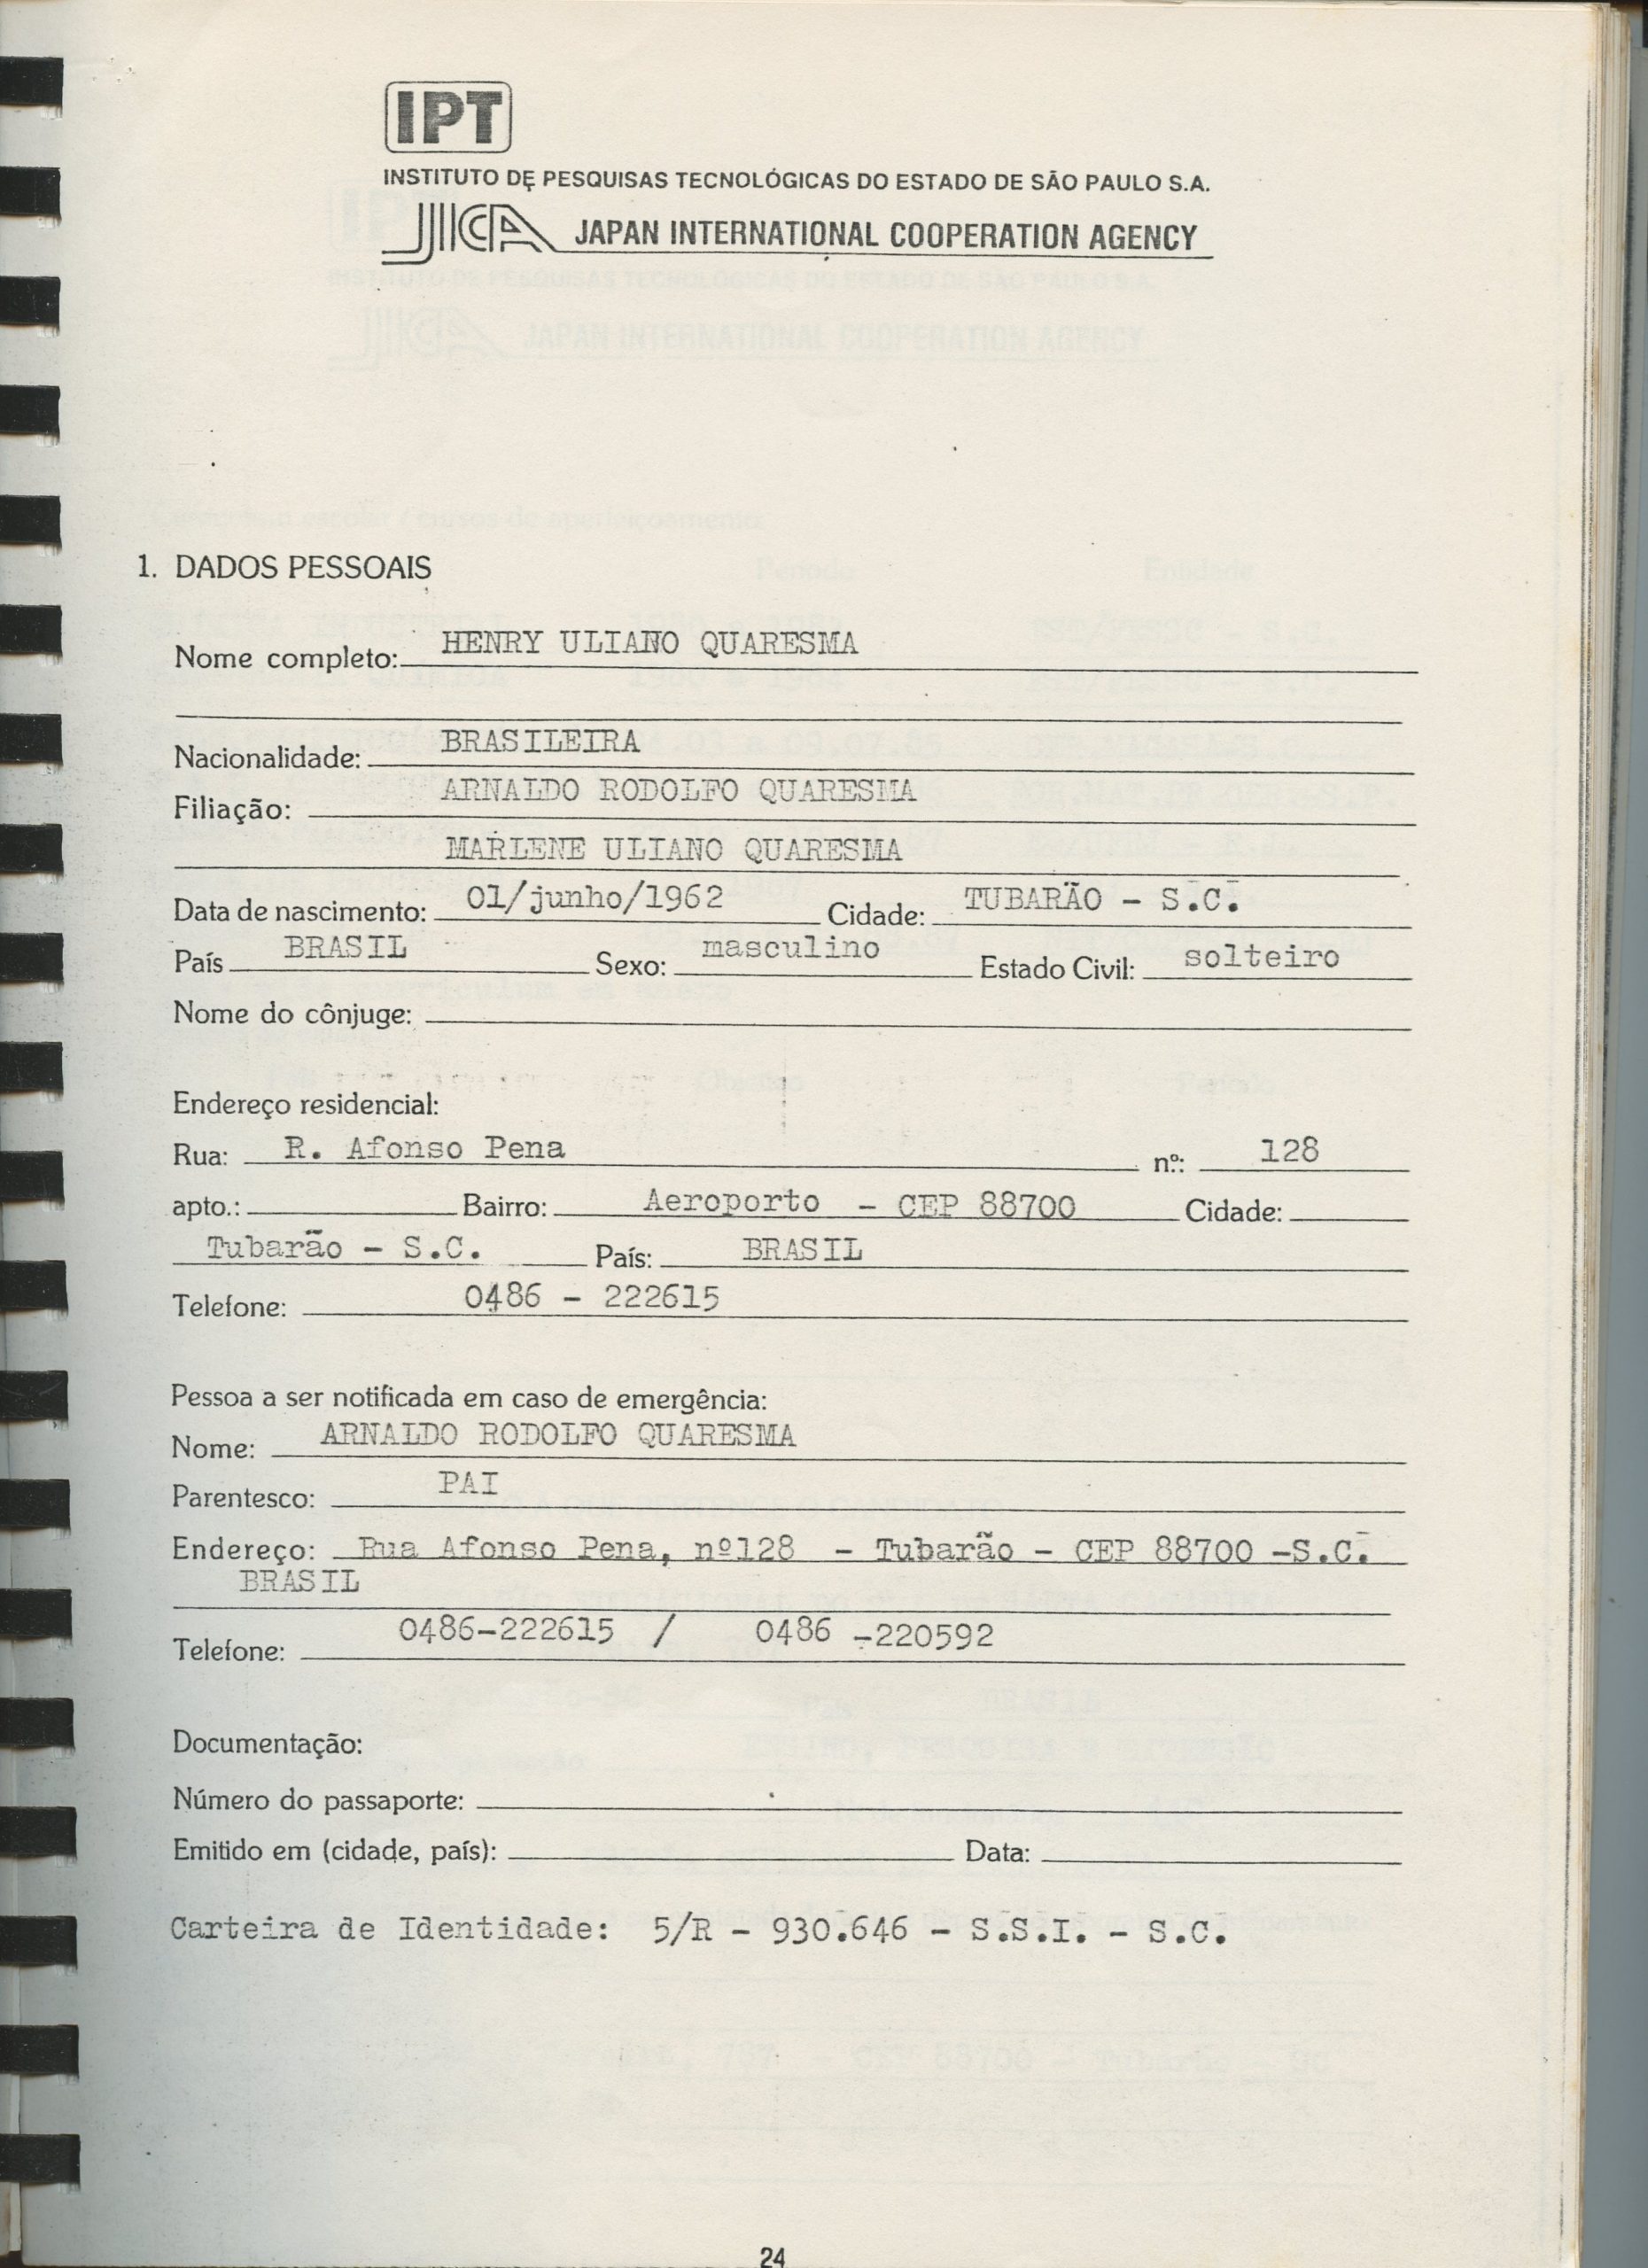 IPT
INSTITUTO DE PESQUISAS TECNOLÓGICAS DO ESTADO DE SÃO PAULO S.A.
JICA JAPAN INTERNATIONAL COOPERATION AGENCY
1. DADOS PESSOAIS
Nome completo: HENRY ULIANO QUARESMA
Nacionalidade: BRASILEIRA
Filiação: ARNALDO RODOLFO QUARESMA
MARLENE ULIANO QUARESMA
Data de nascimento: 01/junho/1962 Cidade: TUBARÃO - S.C.
País BRASIL Sexo: masculino Estado Civil: solteiro
Nome do cônjuge:
Endereço residencial:
Rua: R. Afonso Pena nº: 128
apto.: Bairro: Aeroporto - CEP 88700 Cidade:
Tubarão - S.C. País: BRASIL
Telefone: 0486 - 222615
Pessoa a ser notificada em caso de emergência:
Nome: ARNALDO RODOLFO QUARESMA
Parentesco: PAI
Endereço: Rua Afonso Pena, nº128 - Tubarão - CEP 88700 -S.C.
BRASIL
Telefone: 0486-222615 / 0486 -220592
Documentação:
Número do passaporte:
Emitido em (cidade, país): Data:
Carteira de Identidade: 5/R - 930.646 - S.S.I. - S.C.
24